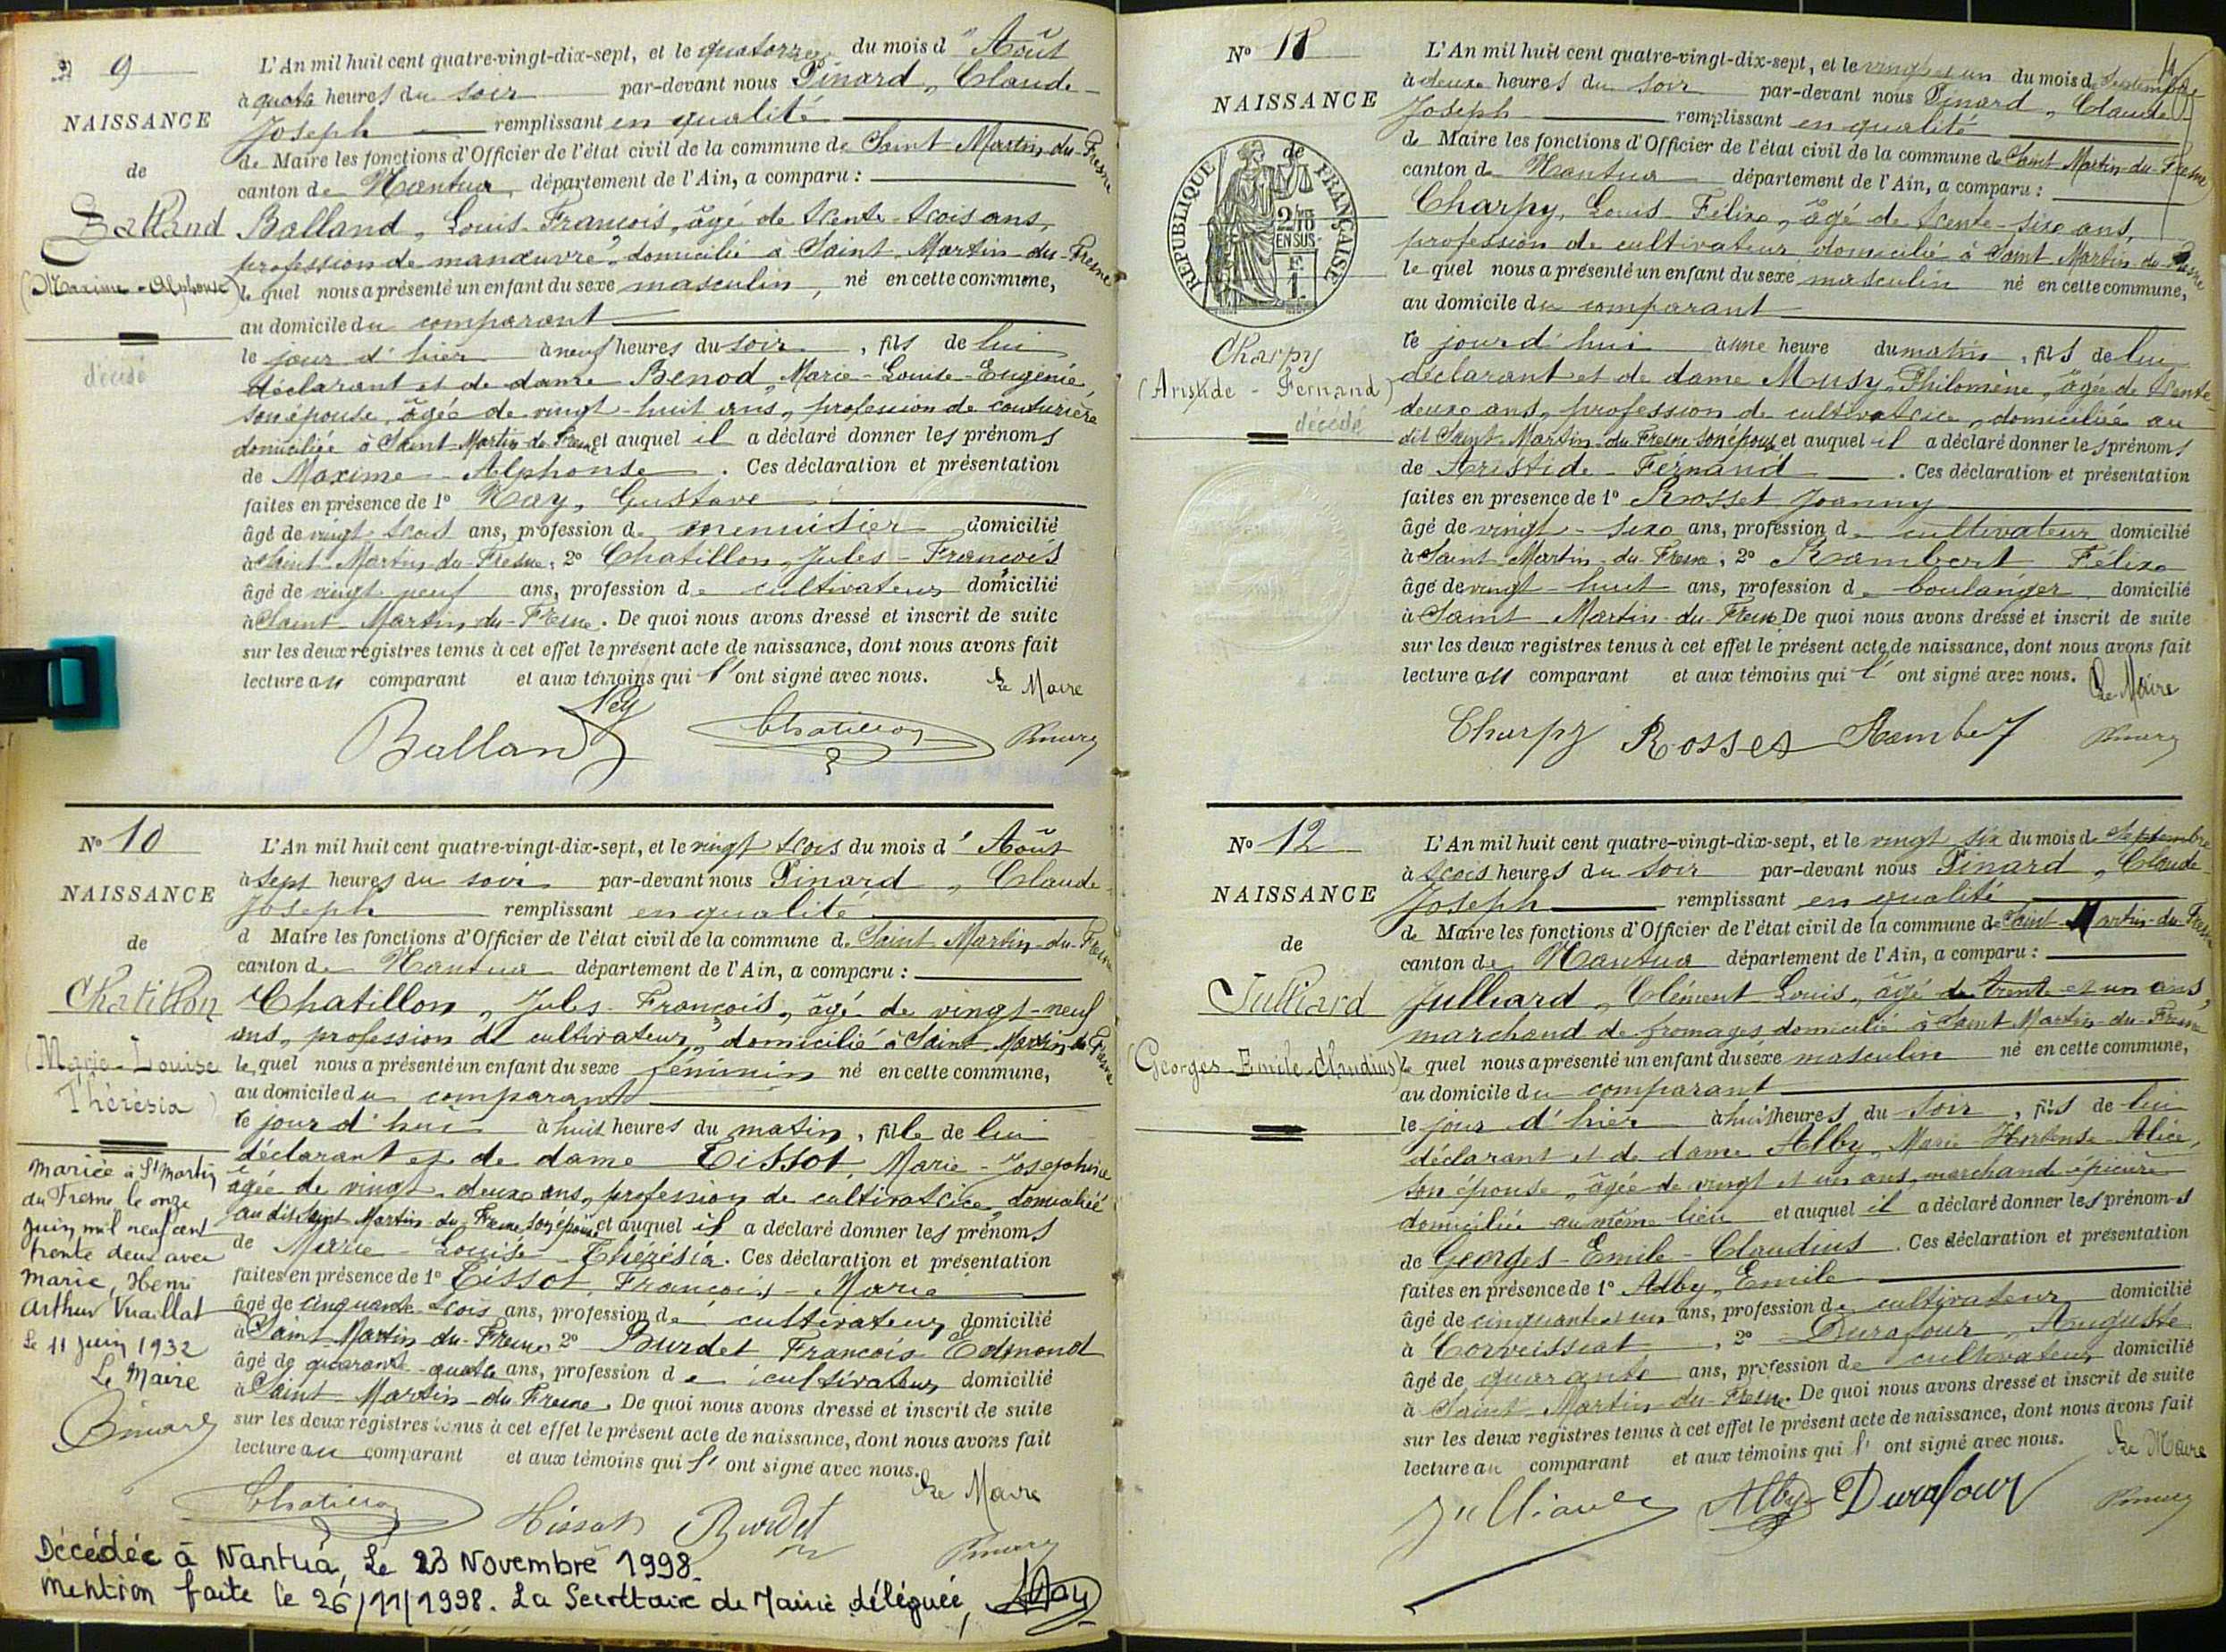 N° 9
NAISSANCE
de
Balland
(Maxime-Alphonse)
décédé
L'An mil huit cent quatre-vingt-dix-sept, et le quatorze du mois d'Août
à quatre heures du soir par-devant nous Pinard, Claude-
Joseph remplissant en qualité
de Maire les fonctions d'Officier de l'état civil de la commune de Saint Martin-du-Fresne
canton de Nantua, département de l'Ain, a comparu :
Balland, Louis-François, âgé de trente-trois ans,
profession de manœuvre, domicilié à Saint-Martin-du-Fresne
lequel nous a présenté un enfant du sexe masculin, né en cette commune,
au domicile du comparant
le jour d'hier à neuf heures du soir, fils de lui
déclarant et de dame Benod, Marie-Louise-Eugénie,
son épouse, âgée de vingt-huit ans, profession de couturière
domiciliée à Saint Martin du Fresne et auquel il a déclaré donner les prénoms
de Maxime-Alphonse. Ces déclaration et présentation
faites en présence de 1° Nay, Gustave
âgé de vingt-trois ans, profession de menuisier domicilié
à Saint Martin du Fresne, 2° Chatillon, Jules-François
âgé de vingt neuf ans, profession de cultivateur domicilié
à Saint-Martin-du-Fresne. De quoi nous avons dressé et inscrit de suite
sur les deux registres tenus à cet effet le présent acte de naissance, dont nous avons fait
lecture au comparant et aux témoins qui l'ont signé avec nous. Le Maire
Balland Ney Chatillon Pinard
N° 10
NAISSANCE
de
Chatillon
(Marie-Louise
Thérèsia)
Mariée à St Martin
du Fresne le onze
juin mil neuf cent
trente deux avec
Marie, Henri
Arthur Vuaillat
Le 11 juin 1932
Le Maire
L'An mil huit cent quatre-vingt-dix-sept, et le vingt trois du mois d'Août
à sept heures du soir par-devant nous Pinard, Claude-
Joseph remplissant en qualité
d Maire les fonctions d'Officier de l'état civil de la commune de Saint Martin-du-Fresne
canton de Nantua département de l'Ain, a comparu :
Chatillon, Jules François, âgé de vingt-neuf
ans, profession de cultivateur, domicilié à Saint Martin du Fresne
lequel nous a présenté un enfant du sexe féminin né en cette commune,
au domicile du comparant
ce jour d'hui à huit heures du matin, fille de lui
déclarant et de dame Tissot, Marie-Josephine
âgée de vingt-deux ans, profession de cultivatrice, domiciliée
au dit Saint Martin du Fresne son épouse et auquel il a déclaré donner les prénoms
de Marie-Louise-Thérésia. Ces déclaration et présentation
faites en présence de 1° Tissot, François-Marie
âgé de cinquante-trois ans, profession de cultivateur domicilié
à Saint-Martin du-Fresne, 2° Burdet François Edmond
âgé de quarante-quatre ans, profession de cultivateur domicilié
à Saint-Martin-du Fresne. De quoi nous avons dressé et inscrit de suite
sur les deux registres tenus à cet effet le présent acte de naissance, dont nous avons fait
lecture au comparant et aux témoins qui l'ont signé avec nous. Le Maire
Chatillon Tissot Burdet Pinard
Décédée à Nantua, Le 23 Novembre 1998.
Mention faite le 26/11/1998. La Secrétaire de Mairie déléguée,
N° 11
NAISSANCE
de
RÉPUBLIQUE FRANÇAISE
2/10 EN SUS
F. 1
Charpy
(Aristide-Fernand)
décédé
L'An mil huit cent quatre-vingt-dix-sept, et le vingt et un du mois de Septembre
à deux heures du soir par-devant nous Pinard, Claude
Joseph remplissant en qualité
de Maire les fonctions d'Officier de l'état civil de la commune de Saint Martin-du-Fresne
canton de Nantua département de l'Ain, a comparu :
Charpy, Louis-Félix, âgé de trente-six ans,
profession de cultivateur domicilié à Saint Martin-du-Fresne
lequel nous a présenté un enfant du sexe masculin né en cette commune,
au domicile du comparant
ce jour d'hui à une heure du matin, fils de lui
déclarant et de dame Musy, Philomène, âgée de trente-
deux ans, profession de cultivatrice, domiciliée au
dit Saint Martin-du Fresne son épouse et auquel il a déclaré donner les prénoms
de Aristide-Fernand. Ces déclaration et présentation
faites en présence de 1° Rosset Joanny
âgé de vingt-six ans, profession de cultivateur domicilié
à Saint-Martin-du-Fresne, 2° Rambert Félix
âgé de vingt-huit ans, profession de boulanger domicilié
à Saint-Martin-du-Fresne De quoi nous avons dressé et inscrit de suite
sur les deux registres tenus à cet effet le présent acte de naissance, dont nous avons fait
lecture au comparant et aux témoins qui l'ont signé avec nous. Le Maire
Charpy Rosset Rambert Pinard
N° 12
NAISSANCE
de
Julliard
(Georges-Emile-Claudius)
L'An mil huit cent quatre-vingt-dix-sept, et le vingt six du mois de Septembre
à trois heures du soir par-devant nous Pinard, Claude-
Joseph remplissant en qualité
de Maire les fonctions d'Officier de l'état civil de la commune de Saint-Martin-du-Fresne
canton de Nantua département de l'Ain, a comparu :
Julliard, Clément Louis, âgé de trente et un ans,
marchand de fromages, domicilié à Saint-Martin-du-Fresne
lequel nous a présenté un enfant du sexe masculin né en cette commune,
au domicile du comparant
le jour d'hier à huit heures du soir, fils de lui
déclarant et de dame Alby, Marie-Hortense-Alice,
son épouse, âgée de vingt et un ans, marchande épicière
domiciliée au même lieu et auquel il a déclaré donner les prénoms
de Georges-Emile-Claudius. Ces déclaration et présentation
faites en présence de 1° Alby, Emile
âgé de cinquante et un ans, profession de cultivateur domicilié
à Corveissiat, 2° Durafour, Auguste
âgé de quarante ans, profession de cultivateur domicilié
à Saint-Martin-du-Fresne. De quoi nous avons dressé et inscrit de suite
sur les deux registres tenus à cet effet le présent acte de naissance, dont nous avons fait
lecture au comparant et aux témoins qui l'ont signé avec nous. Le Maire
Julliard Alby Durafour Pinard